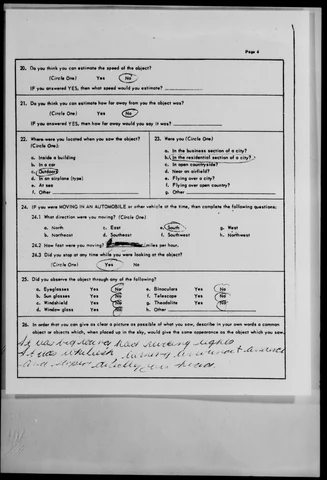 Page 4
20. Do you think you can estimate the speed of the object?
(Circle One) Yes No
IF you answered YES, then what speed would you estimate?
21. Do you think you can estimate how far away from you the object was?
(Circle One) Yes No
IF you answered YES, then how far away would you say it was?
22. Where were you located when you saw the object?
(Circle One):
a. Inside a building
b. In a car
c. Outdoors
d. In an airplane (type)
e. At sea
f. Other
23. Were you (Circle One)
a. In the business section of a city?
b. In the residential section of a city?
c. In open countryside?
d. Near an airfield?
e. Flying over a city?
f. Flying over open country?
g. Other
24. IF you were MOVING IN AN AUTOMOBILE or other vehicle at the time, then complete the following questions:
24.1 What direction were you moving? (Circle One)
a. North c. East e. South g. West
b. Northeast d. Southeast f. Southwest h. Northwest
24.2 How fast were you moving? miles per hour.
24.3 Did you stop at any time while you were looking at the object?
(Circle One) Yes No
25. Did you observe the object through any of the following?
a. Eyeglasses Yes No e. Binoculars Yes No
b. Sun glasses Yes No f. Telescope Yes No
c. Windshield Yes No g. Theodolite Yes No
d. Window glass Yes No h. Other
26. In order that you can give as clear a picture as possible of what you saw, describe in your own words a common
object or objects which, when placed up in the sky, would give the same appearance as the object which you saw.
It was big had lights
It was
and